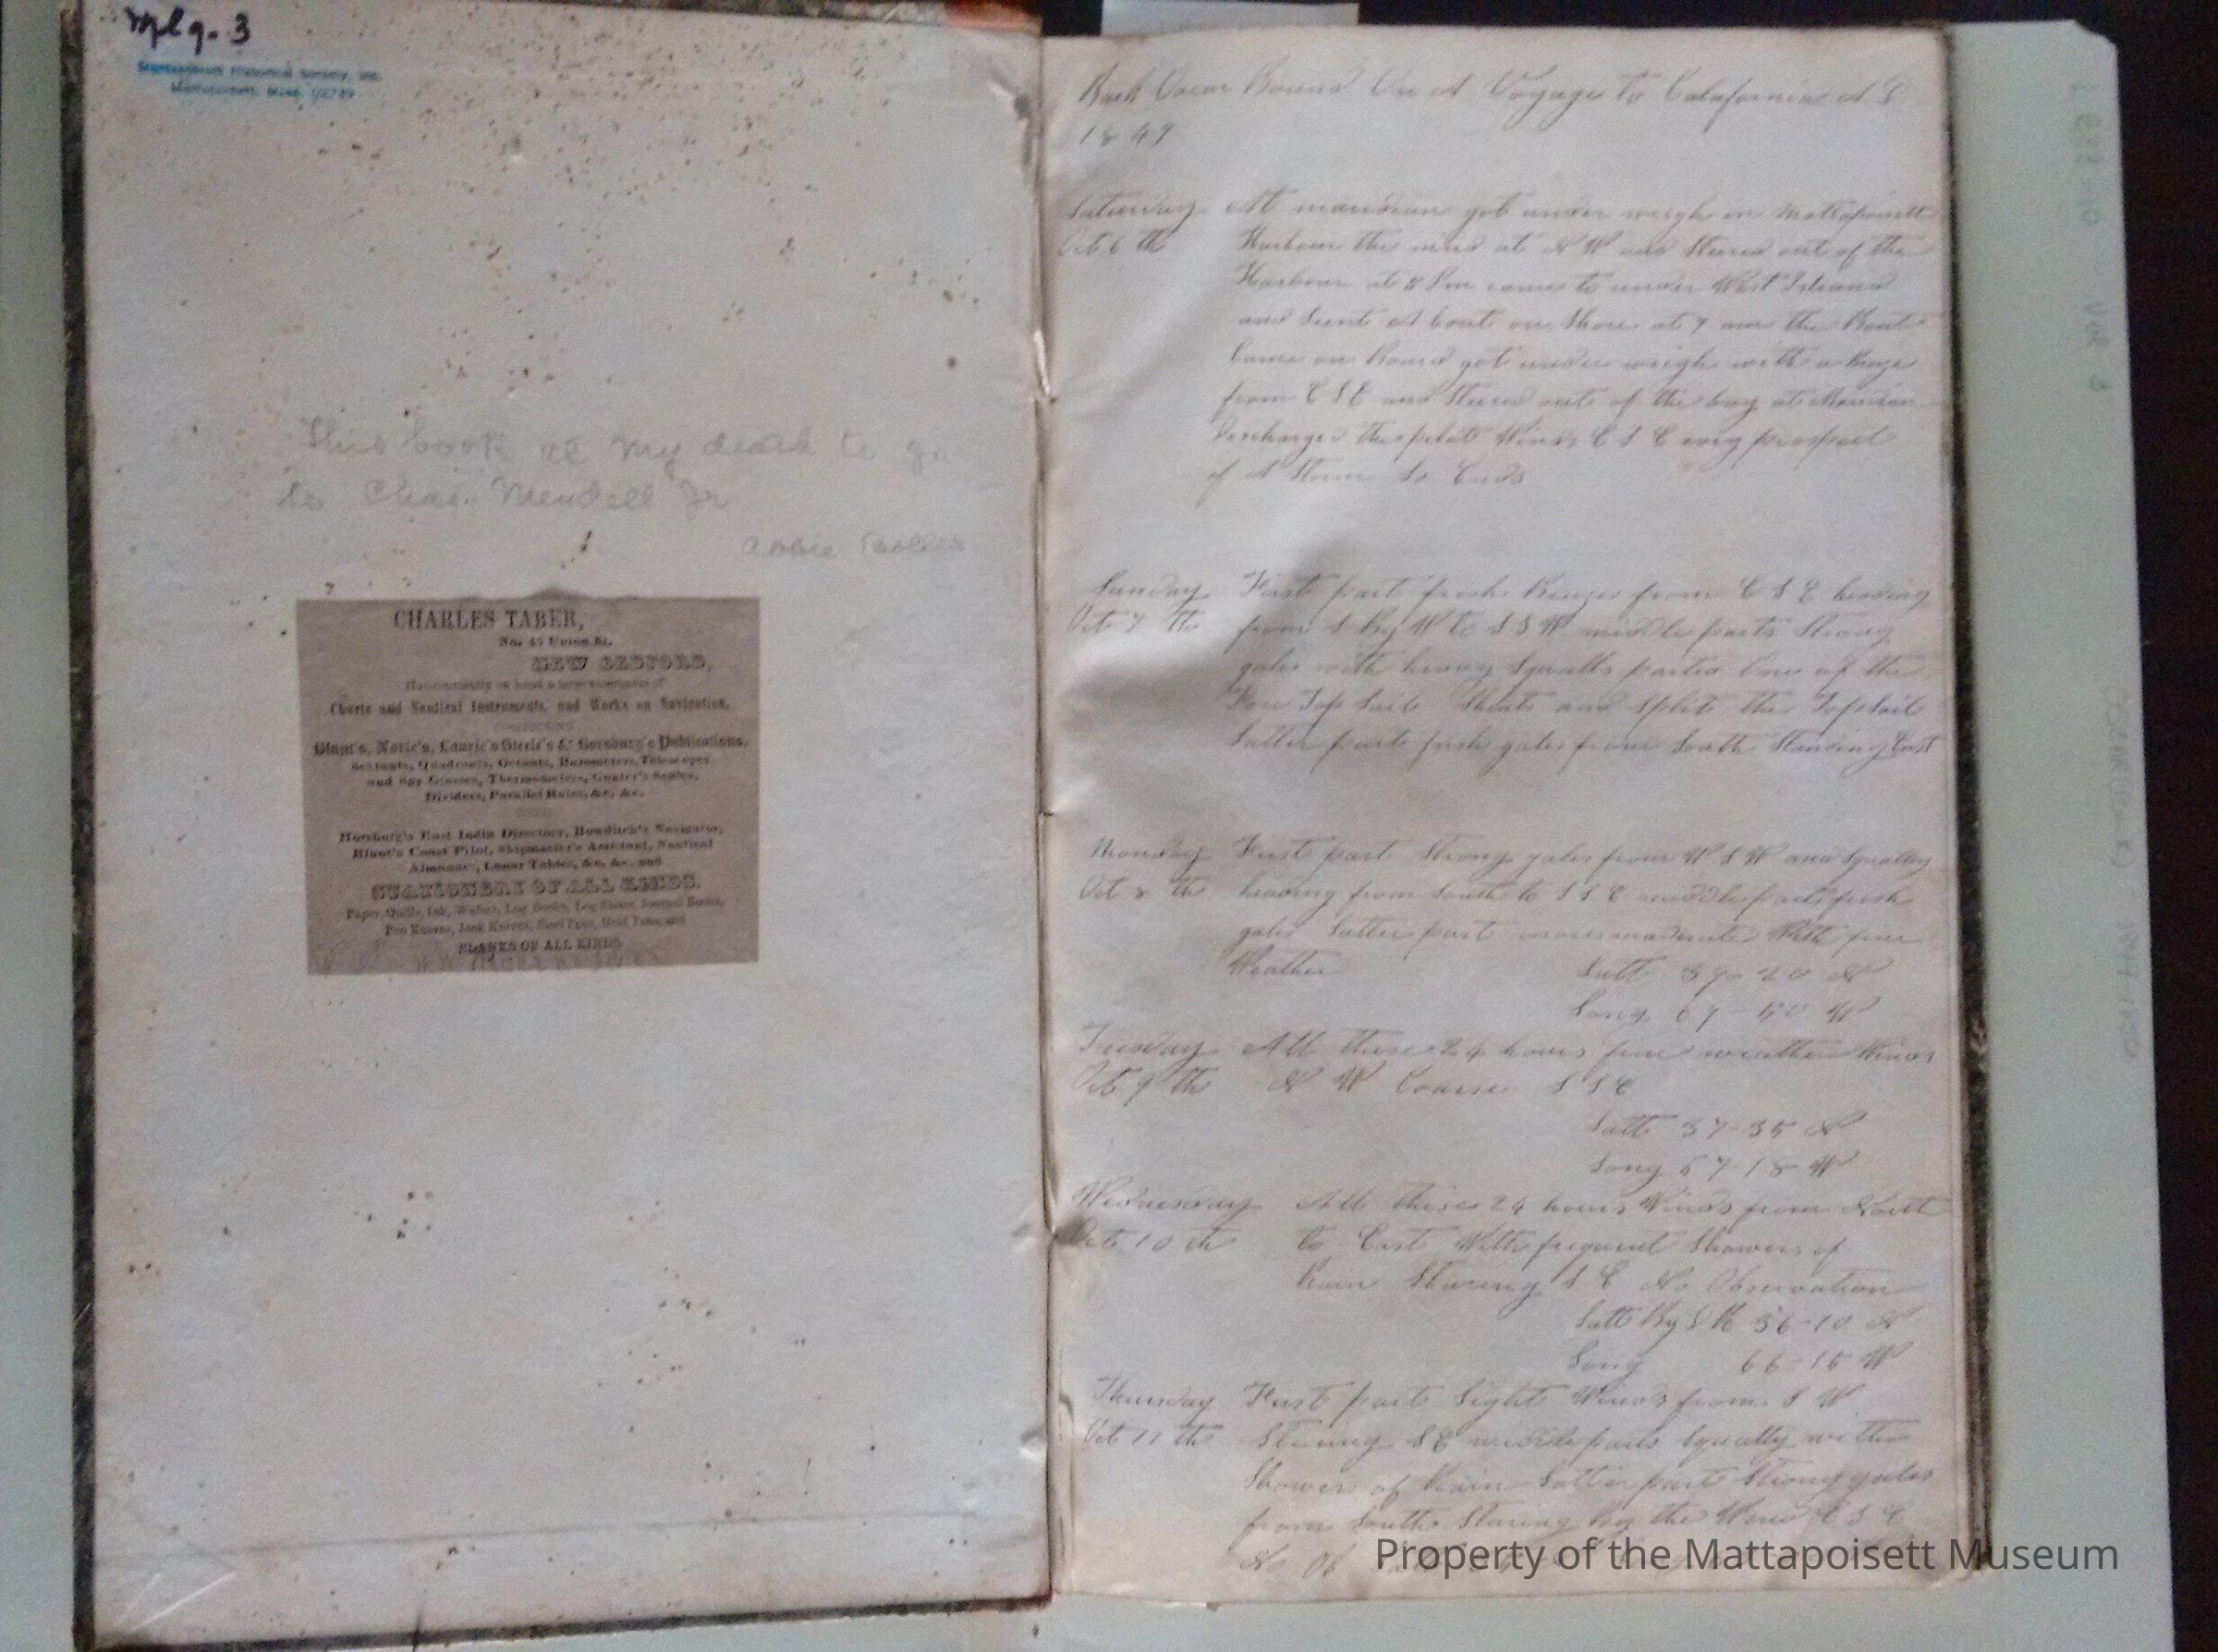 Mlg. 3
Mattapoisett Historical Society, Inc.
Mattapoisett, Mass. 02739
This book at my death to go
to Chas. Mendell Jr
Abbie
CHARLES TABER,
No. 45 Union St.
NEW BEDFORD,
Has constantly on hand a large assortment of
Charts and Nautical Instruments, and Works on Navigation,
Blunt's, Norie's, Laurie's Steele's & Horsburg's Publications,
Sextants, Quadrants, Octants, Barometers, Telescopes
and Spy Glasses, Thermometers, Gunter's Scales,
Dividers, Parallel Rules, &c. &c.
Horsburg's East India Directory, Bowditch's Navigator,
Blunt's Coast Pilot, Shipmaster's Assistant, Nautical
Almanac, Lunar Tables, &c. &c. and
STATIONERY OF ALL KINDS.
Paper, Quills, Ink, Wafers, Log Books, Log Slates, Journal Books,
Pen Knives, Jack Knives, Steel Pens, and
BLANKS OF ALL KINDS
Bark Oscar Bound On A Voyage To Calafornia A D
1849
Saturday At meridian got under weigh in Mattapoisett
Oct 6 th Harbour the wind at N W and Steered out of the
Harbour at Pm came to under West Island
and Sent A boat on Shore at 7 am the Boat
Came on Board got under weigh with a Breze
from E S E and Steered out of the bay at Meridian
Discharged the pilot Winds E S E evry prospect
of A Storm So Ends
Sunday First part fresh Brezes from E S E heading
Oct 7 th from S By W to S S W middle parts Strong
gales with heavy Squalls parted One of the
Fore Top Sail Sheats and Split the TopSail
Latter part fresh gales from South Standing East
Monday First part Strong gales from W S W and Squally
Oct 8 th heading from South to S S E middle parts fresh
gales Latter part more moderate With fine
Weather Latt 39-20 N
Long 69-50 W
Tuesday All these 24 hours fine weather Winds
Oct 9 th N W Course S S E
Latt 37-35 N
Long 67-18 W
Wednesday All these 24 hours Winds from North
Oct 10 th to East With frequent Showers of
Rain Stearing S E No Observation
Latt By D R 36-10 N
Long 66-15 W
Thursday First part Light Winds from S W
Oct 11 th Stearing S E middle parts Squally with
Showers of Rain Latter part Strong gales
from South Stearing By the Wind E S E
No Ob
Property of the Mattapoisett Museum